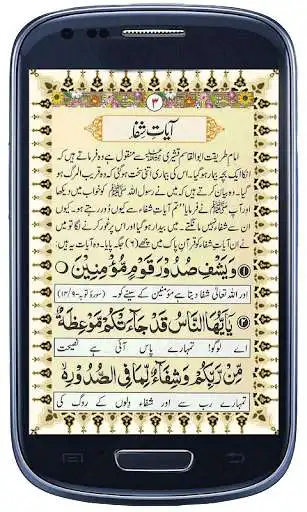 ۳
آیاتِ شِفَا
امام طریقت ابوالقاسم قشیری ﷫ سے منقول ہے وہ فرماتے ہیں کہ
انکا ایک بچہ بیمار ہو گیا۔ اس کی بیماری اتنی سخت ہو گئی کہ وہ قریب المرگ ہو
گیا۔ وہ بیان کرتے ہیں کہ میں نے رسول اللہ ﷺ کو خواب میں دیکھا
اور آپ ﷺ نے فرمایا "تم آیات شفاء سے کیوں دور رہتے ہو۔ کیوں
ان سے شفاء نہیں مانگتے" میں بیدار ہو گیا اور اس پر غور کرنے لگا تو میں
نے ان آیات شفاء کو قرآن پاک میں چھے (۶) جگہ پایا۔ وہ آیات یہ ہیں:
۱ وَيَشْفِ صُدُوْرَ قَوْمٍ مُّؤْمِنِيْنَ
اور اللہ تعالیٰ شفا دیتا ہے مؤمنین کے سینے کو۔ (سورۂ توبہ ۱۴/۹)
۲ يٰٓاَيُّهَا النَّاسُ قَدْ جَآءَتْكُمْ مَّوْعِظَةٌ
اے لوگو! تمہارے پاس آئی ہے نصیحت
مِّنْ رَّبِّكُمْ وَشِفَآءٌ لِّمَا فِي الصُّدُوْرِ
تمہارے رب سے اور شفاء دلوں کے روگ کی